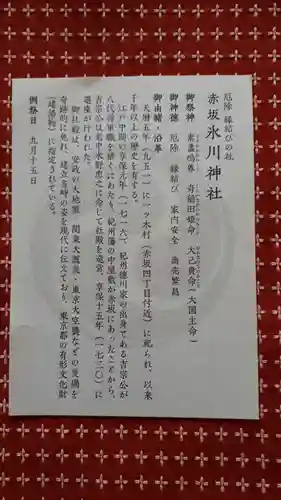 厄除 縁結びの社
赤坂氷川神社
御祭神 素盞嗚尊 奇稲田姫命 大己貴命(大国主命)
御神徳 厄除 縁結び 家内安全 商売繁昌
御由緒・沿革
天暦五年(九五一)に一ツ木村(赤坂四丁目付近)に祀られ、以来
千年以上の歴史を有する。
江戸中期の享保元年(一七一六)、紀州徳川家の出身である吉宗公が
八代将軍職を継ぐにあたり、紀州藩の中屋敷が赤坂にあったことから、
吉宗公は老中水野忠之に命じて社殿を造営、享保十五年(一七三〇)に
遷座が行われた。
御社殿は、安政の大地震、関東大震災、東京大空襲などの災禍を
奇跡的に免れ、建立当時の姿を現代に伝えており、東京都の有形文化財
(建造物)に指定されている。
例祭日 九月十五日